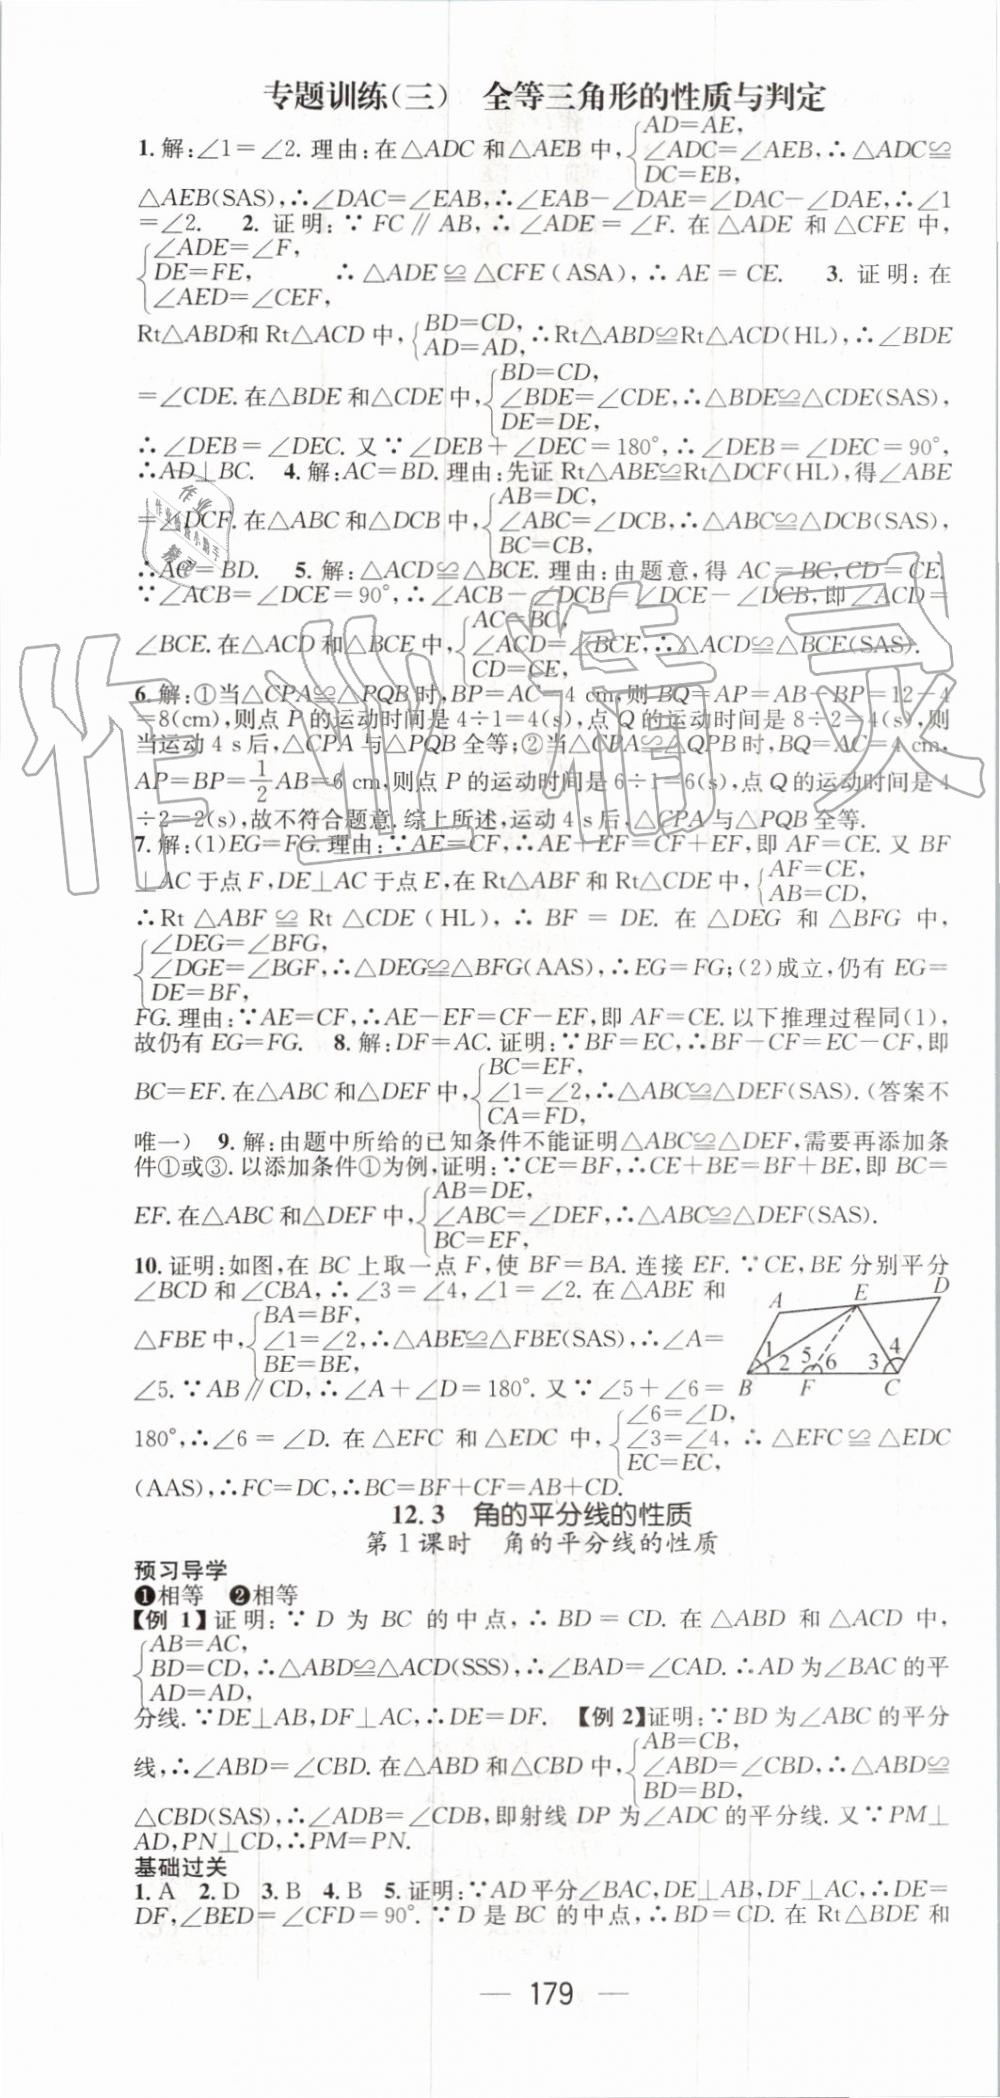 专题训练(三)　全等三角形的性质与判定
AD=AE,
1.解:∠1=∠2.理由:在△ADC和△AEB中,∠ADC=∠AEB,∴△ADC≌
DC=EB,
△AEB(SAS),∴∠DAC=∠EAB,∴∠EAB−∠DAE=∠DAC−∠DAE,∴∠1
=∠2.　2.证明:∵FC∥AB,∴∠ADE=∠F.在△ADE和△CFE中,
∠ADE=∠F,
DE=FE,　∴△ADE≌△CFE(ASA),∴AE=CE.　3.证明:在
∠AED=∠CEF,
Rt△ABD和Rt△ACD中,{BD=CD, AD=AD,∴Rt△ABD≌Rt△ACD(HL),∴∠BDE
BD=CD,
=∠CDE.在△BDE和△CDE中,∠BDE=∠CDE,∴△BDE≌△CDE(SAS),
DE=DE,
∴∠DEB=∠DEC.又∵∠DEB+∠DEC=180°,∴∠DEB=∠DEC=90°,
∴AD⊥BC.　4.解:AC=BD.理由:先证Rt△ABE≌Rt△DCF(HL),得∠ABE
AB=DC,
=∠DCF.在△ABC和△DCB中,∠ABC=∠DCB,∴△ABC≌△DCB(SAS),
BC=CB,
∴AC=BD.　5.解:△ACD≌△BCE.理由:由题意,得AC=BC,CD=CE.
∵∠ACB=∠DCE=90°,∴∠ACB−∠DCB=∠DCE−∠DCB,即∠ACD=
AC=BC,
∠BCE.在△ACD和△BCE中,∠ACD=∠BCE,∴△ACD≌△BCE(SAS).
CD=CE,
6.解:①当△CPA≌△PQB时,BP=AC=4 cm,则BQ=AP=AB−BP=12−4
=8(cm),则点P的运动时间是4÷1=4(s),点Q的运动时间是8÷2=4(s),则
当运动4 s后,△CPA与△PQB全等;②当△CPA≌△QPB时,BQ=AC=4 cm,
AP=BP=1/2AB=6 cm,则点P的运动时间是6÷1=6(s),点Q的运动时间是4
÷2=2(s),故不符合题意.综上所述,运动4 s后,△CPA与△PQB全等.
7.解:(1)EG=FG.理由:∵AE=CF,∴AE+EF=CF+EF,即AF=CE.又BF
⊥AC于点F,DE⊥AC于点E,在Rt△ABF和Rt△CDE中,{AF=CE, AB=CD,
∴Rt△ABF≌Rt△CDE(HL),∴BF=DE.在△DEG和△BFG中,
∠DEG=∠BFG,
∠DGE=∠BGF,∴△DEG≌△BFG(AAS),∴EG=FG;(2)成立,仍有EG=
DE=BF,
FG.理由:∵AE=CF,∴AE−EF=CF−EF,即AF=CE.以下推理过程同(1),
故仍有EG=FG.　8.解:DF=AC.证明:∵BF=EC,∴BF−CF=EC−CF,即
BC=EF,
BC=EF.在△ABC和△DEF中,∠1=∠2,∴△ABC≌△DEF(SAS).(答案不
CA=FD,
唯一)　9.解:由题中所给的已知条件不能证明△ABC≌△DEF,需要再添加条
件①或③.以添加条件①为例,证明:∵CE=BF,∴CE+BE=BF+BE,即BC=
AB=DE,
EF.在△ABC和△DEF中,∠ABC=∠DEF,∴△ABC≌△DEF(SAS).
BC=EF,
10.证明:如图,在BC上取一点F,使BF=BA.连接EF.∵CE,BE分别平分
∠BCD和∠CBA,∴∠3=∠4,∠1=∠2.在△ABE和
BA=BF,
△FBE中,∠1=∠2,∴△ABE≌△FBE(SAS),∴∠A=
BE=BE,
∠5.∵AB∥CD,∴∠A+∠D=180°.又∵∠5+∠6=
A E D
1 2 5 6 3 4
B F C
∠6=∠D,
180°,∴∠6=∠D.在△EFC和△EDC中,∠3=∠4,∴△EFC≌△EDC
EC=EC,
(AAS),∴FC=DC,∴BC=BF+CF=AB+CD.
12.3　角的平分线的性质
第1课时　角的平分线的性质
预习导学
❶相等　❷相等
【例1】证明:∵D为BC的中点,∴BD=CD.在△ABD和△ACD中,
AB=AC,
BD=CD,∴△ABD≌△ACD(SSS),∴∠BAD=∠CAD.∴AD为∠BAC的平
AD=AD,
分线.∵DE⊥AB,DF⊥AC,∴DE=DF.　【例2】证明:∵BD为∠ABC的平分
AB=CB,
线,∴∠ABD=∠CBD.在△ABD和△CBD中,∠ABD=∠CBD,∴△ABD≌
BD=BD,
△CBD(SAS),∴∠ADB=∠CDB,即射线DP为∠ADC的平分线.又∵PM⊥
AD,PN⊥CD,∴PM=PN.
基础过关
1.A　2.D　3.B　4.B　5.证明:∵AD平分∠BAC,DE⊥AB,DF⊥AC,∴DE=
DF,∠BED=∠CFD=90°.∵D是BC的中点,∴BD=CD.在Rt△BDE和
— 179 —
作业精灵